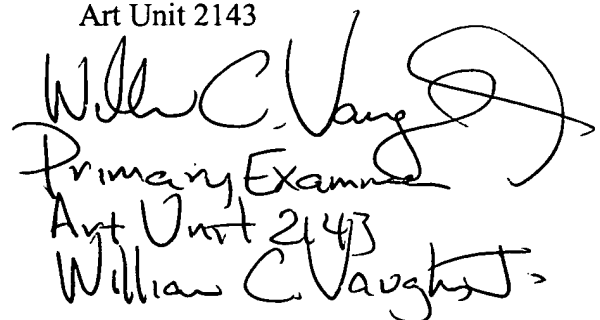 Art Unit 2143
William C. Vaughn, Jr.
Primary Examiner
Art Unit 2143
William C. Vaughn, Jr.